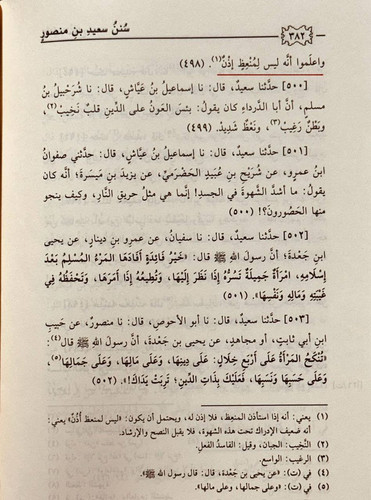 ٣٨٢
سُننُ سعيدِ بنِ منصورٍ
واعلَموا أنَّه ليس لِمُنعِظٍ إِذْنٌ(١). (٤٩٨)
[٥٠٠] حدَّثنا سعيدٌ، قال: نا إسماعيلُ بنُ عيَّاشٍ، قال: نا شُرَحبيلُ بنُ
مسلمٍ، أنَّ أبا الدَّرداءِ كان يقولُ: بئسَ العونُ على الدِّينِ قلبٌ نَخِيبٌ(٢)،
وبَطْنٌ رَغِيبٌ(٣)، ونَعْظٌ شديدٌ. (٤٩٩)
[٥٠١] حدَّثنا سعيدٌ، قال: نا إسماعيلُ بنُ عيَّاشٍ، قال: حدَّثني صفوانُ
ابنُ عمرٍو، عن شُرَيْحِ بنِ عُبَيدٍ الحَضْرَميِّ، عن يزيدَ بنِ مَيسَرةَ؛ أنَّه كان
يقولُ: ما أشدَّ الشَّهوةَ في الجسدِ! إنَّما هي مثلُ حريقِ النَّارِ، وكيف ينجو
منها الحَصُورونَ؟! (٥٠٠)
[٥٠٢] حدَّثنا سعيدٌ، قال: نا سفيانُ، عن عمرِو بنِ دينارٍ، عن يحيى
بنِ جَعْدةَ؛ أنَّ رسولَ اللهِ ﷺ قال: «خَيْرُ فَائِدَةٍ أَفَادَهَا المَرْءُ المُسْلِمُ بَعْدَ
إِسْلَامِهِ، امْرَأَةٌ جَمِيلَةٌ تَسُرُّهُ إِذَا نَظَرَ إِلَيْهَا، وَتُطِيعُهُ إِذَا أَمَرَهَا، وَتَحْفَظُهُ فِي
غَيْبَتِهِ وَمَالِهِ وَنَفْسِهَا». (٥٠١)
[٥٠٣] حدَّثنا سعيدٌ، قال: نا أبو الأحوصِ، قال: نا منصورٌ، عن حَبيبِ
ابنِ أبي ثابتٍ، أو مجاهدٍ، عن يحيى بنِ جَعْدةَ، أنَّ رسولَ اللهِ ﷺ قال(٤):
«تُنْكَحُ المَرْأَةُ عَلَى أَرْبَعِ خِلَالٍ: عَلَى دِينِهَا، وَعَلَى مَالِهَا، وَعَلَى جَمَالِهَا(٥)،
وَعَلَى حَسَبِهَا وَنَسَبِهَا، فَعَلَيْكَ بِذَاتِ الدِّينِ؛ تَرِبَتْ يَدَاكَ!». (٥٠٢)
(١) يعني: أنه إذا استأذن المنعِظ، فلا إذن له، ويحتمل أن يكون: «ليس لمنعظ أُذُنٌ» يعني:
أنه ضعيف الإدراك تحت هذه الشهوة، فلا يقبل النصح والإرشاد.
(٢) النَّخِيب: الجبان، وقيل: الفاسدُ الفعلِ.
(٣) الرغيب: الواسع.
(٤) في (ت): «عن يحيى بن جَعْدة، قال: قال رسول الله ﷺ».
(٥) في (ت): «وعلى جمالها، وعلى مالها».